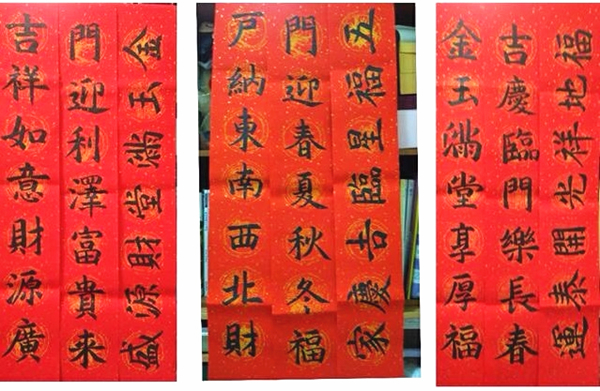 福地祥光開泰運
吉慶臨門樂長春
金玉滿堂享厚福
五福星臨吉慶家
門迎春夏秋冬福
戶納東南西北財
金玉滿堂財源盛
門迎利澤富貴来
吉祥如意財源廣